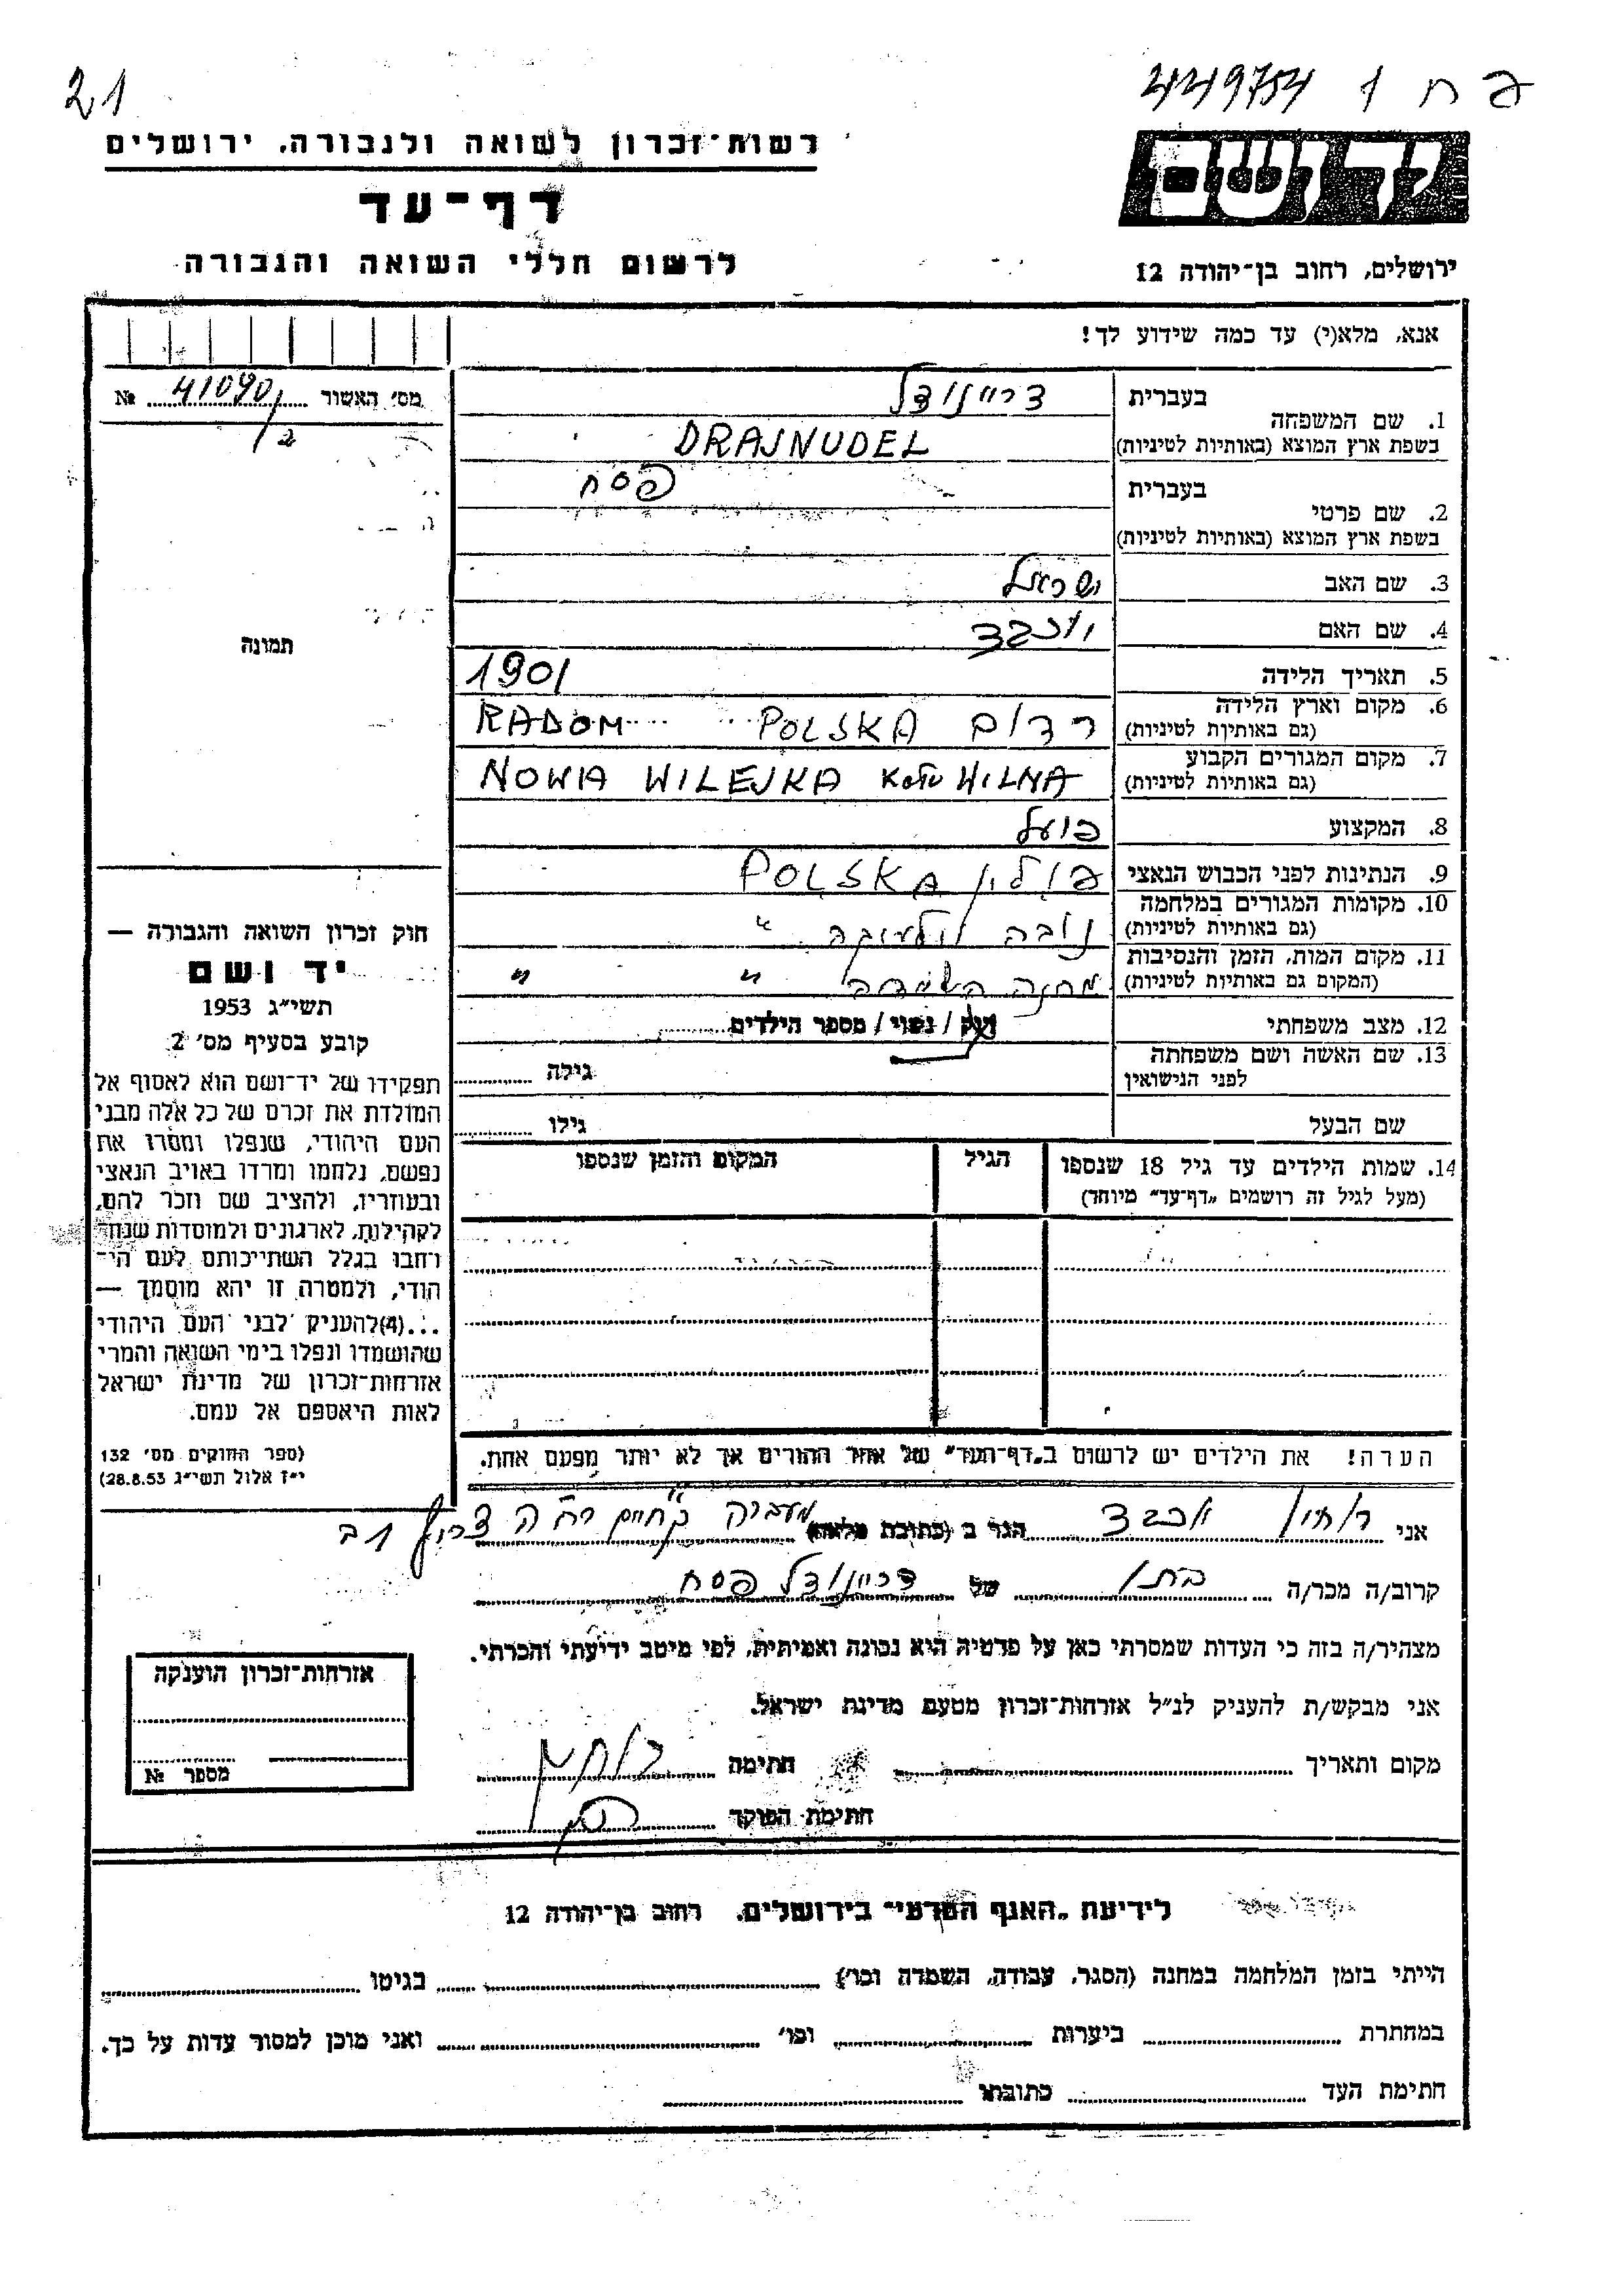 21
449754 1 פ ח
רשות־זכרון לשואה ולגבורה, ירושלים
יד ושם
דף־עד
לרשום חללי השואה והגבורה
ירושלים, רחוב בן־יהודה 12
אנא, מלא(י) עד כמה שידוע לך!
מס׳ האשור 41090/2 №
1. שם המשפחה
בעברית דריינודל
בשפת ארץ המוצא (באותיות לטיניות) DRAJNUDEL
2. שם פרטי
בעברית פסח
בשפת ארץ המוצא (באותיות לטיניות)
3. שם האב ישראל
4. שם האם יוכבד
5. תאריך הלידה 1901
6. מקום וארץ הלידה
(גם באותיות לטיניות) רדום POLSKA RADOM
7. מקום המגורים הקבוע
(גם באותיות לטיניות) NOWA WILEJKA koło WILNA
8. המקצוע פועל
9. הנתינות לפני הכבוש הנאצי פולין POLSKA
10. מקומות המגורים במלחמה
(גם באותיות לטיניות) נובה וילייקה "
11. מקום המות, הזמן והנסיבות
(המקום גם באותיות לטיניות) מחנה השמדה " "
12. מצב משפחתי רווק / נשוי / מספר הילדים
13. שם האשה ושם משפחתה
לפני הנישואין גילה
שם הבעל גילו
14. שמות הילדים עד גיל 18 שנספו
(מעל לגיל זה רושמים „דף־עד״ מיוחד)
הגיל
המקום והזמן שנספו
הערה! את הילדים יש לרשום ב„דף־העד״ של אחד ההורים אך לא יותר מפעם אחת.
תמונה
חוק זכרון השואה והגבורה —
יד ושם
תשי״ג 1953
קובע בסעיף מס׳ 2
תפקידו של יד־ושם הוא לאסוף אל
המולדת את זכרם של כל אלה מבני
העם היהודי, שנפלו ומסרו את
נפשם, נלחמו ומרדו באויב הנאצי
ובעוזריו, ולהציב שם וזכר להם,
לקהילות, לארגונים ולמוסדות שנח־
רבו בגלל השתייכותם לעם הי־
הודי, ולמטרה זו יהא מוסמך —
...(4) להעניק לבני העם היהודי
שהושמדו ונפלו בימי השואה והמרי
אזרחות־זכרון של מדינת ישראל
לאות היאספם אל עמם.
(ספר החוקים מס׳ 132
י״ז אלול תשי״ג 28.8.53)
אני יוכבד הגר ב (כתובת מלאה) מעברה ק״חיים
קרוב/ה מכר/ה בתו של דריינודל פסח
מצהיר/ה בזה כי העדות שמסרתי כאן על פרטיה היא נכונה ואמיתית, לפי מיטב ידיעתי והכרתי.
אני מבקש/ת להעניק לנ״ל אזרחות־זכרון מטעם מדינת ישראל.
מקום ותאריך חתימה
חתימת הפוקד
אזרחות־זכרון הוענקה
מספר №
לידיעת „האגף המדעי״ בירושלים, רחוב בן־יהודה 12
הייתי בזמן המלחמה במחנה (הסגר, עבודה, השמדה וכו׳) בגיטו
במחתרת ביערות וכו׳ ואני מוכן למסור עדות על כך.
חתימת העד כתובתו